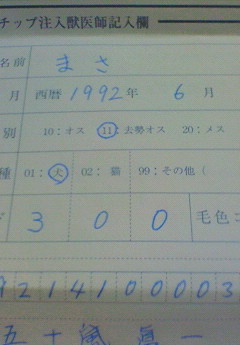 チップ注入獣医師記入欄
名前 まさ
月 西暦 1992年 6月
別 10:オス 11:去勢オス 20:メス
種 01:犬 02:猫 99:その他(
3 0 0 毛色コ
9214100003
五十嵐 眞一